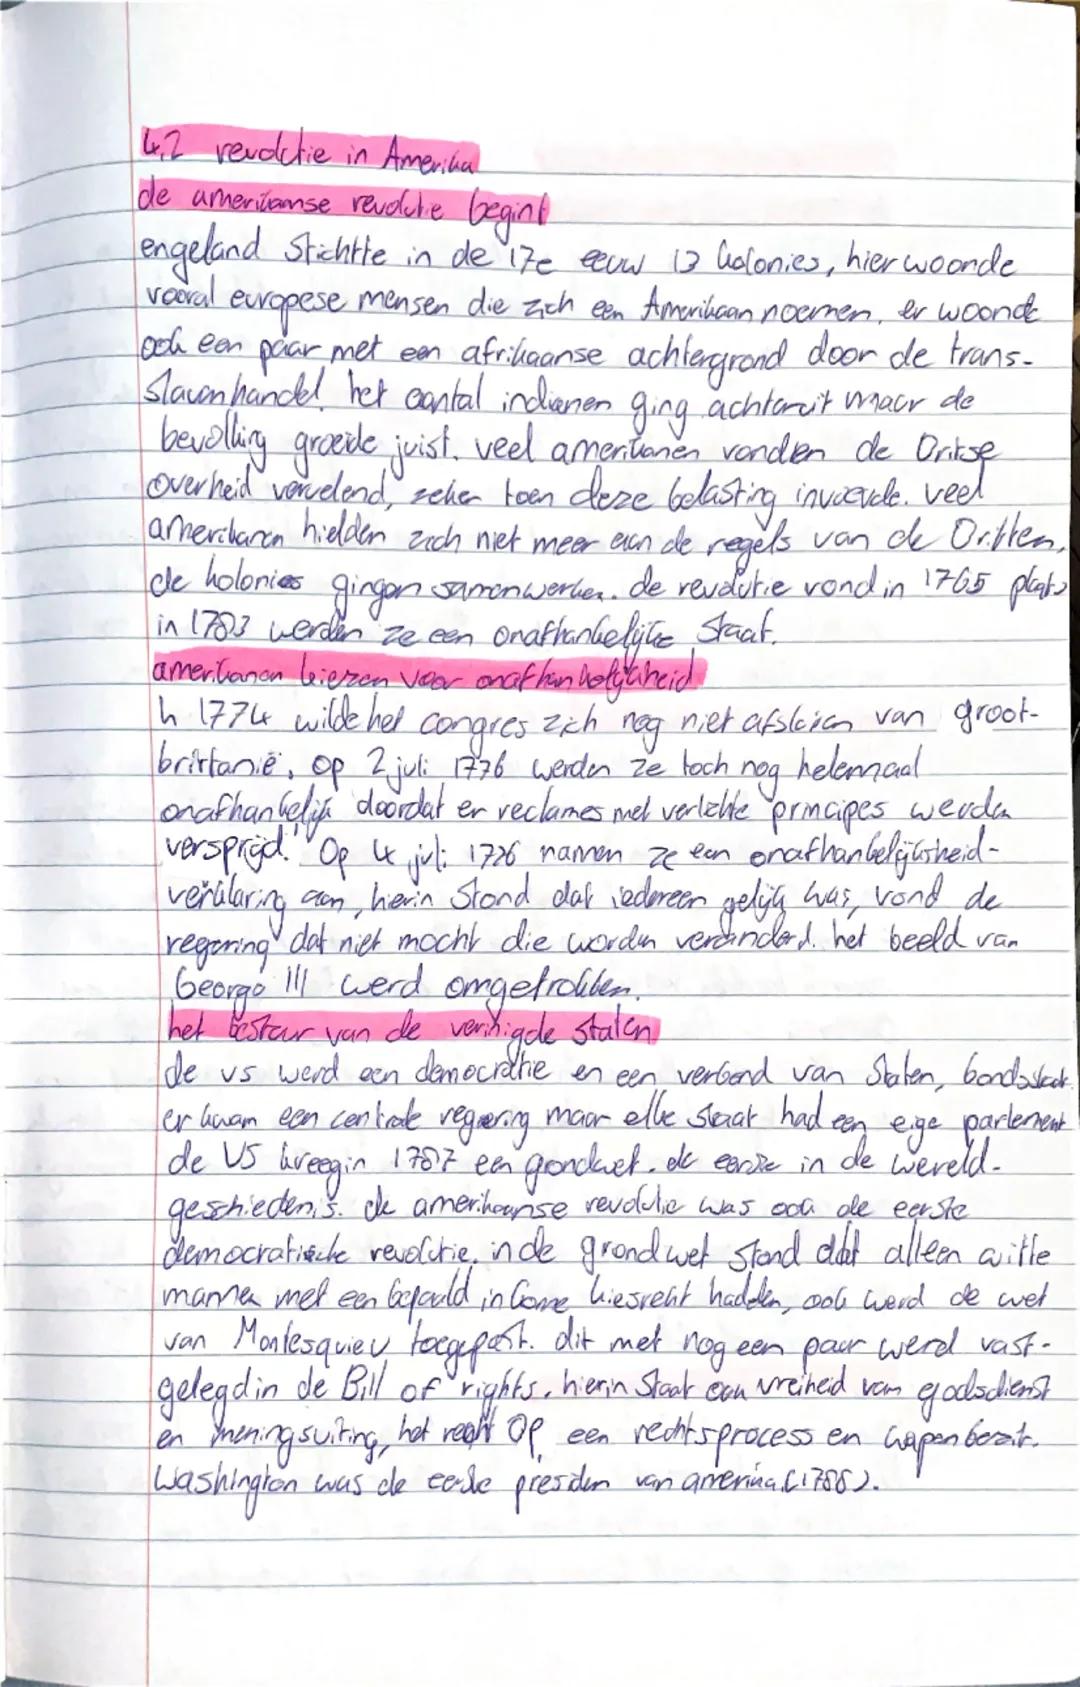 4,2 revolutie in Amerika
de amerikaanse revolutie begint
engeland Stichtte in de 17e eeuw 13 kolonies, hier woonde
vooral europese mensen die zich een Amerikaan noemen, er woonde
ook een paar met een afrikaanse achtergrond door de trans-
Slavenhandel. het aantal indianen ging achteruit maar de
bevolking groeide juist. veel amerikanen vonden de Britse
overheid vervelend, zeker toen deze belasting invoerde. veel
amerikanen hielden zich niet meer aan de regels van de Britten,
de kolonies gingen samenwerken. de revolutie vond in 1765 plaats
in 1783 werden ze een onafhankelijke Staat.
amerikanen kiezen voor onafhankelijkheid
In 1774 wilde het congres zich nog niet afsleiden van groot-
brittanië, op 2 juli 1776 werden ze toch nog helemaal
onafhankelijk doordat er reclames met verlichte principes werden
verspreid. Op 4 juli 1776 namen ze een onafhankelijkheid-
verklaring aan, hierin Stond dat iedereen gelijk was, vond de
regering dat niet mocht die worden veranderd. het beeld van
George III werd omgetrokken.
het bestuur van de verenigde staten
de vs werd een democratie en een verbond van Staten, bondsstaat.
er kwam een centrale regering maar elke staat had een eige parlement
de VS kreeg in 1787 een grondwet. de eerste in de wereld-
geschiedenis. de amerikaanse revolutie was ook de eerste
democratische revolutie. in de grondwet stond dat alleen witte
mannen met een bepaald inkome kiesrecht hadden, ook werd de wet
van Montesquieu toegepast. dit met nog een paar werd vast-
gelegd in de Bill of rights. hierin Staat ook vreiheid van godsdienst
en meningsuiting, het recht op een rechtsprocess en wapenbezit.
Washington was de eerste presiden van amerika. (1788).